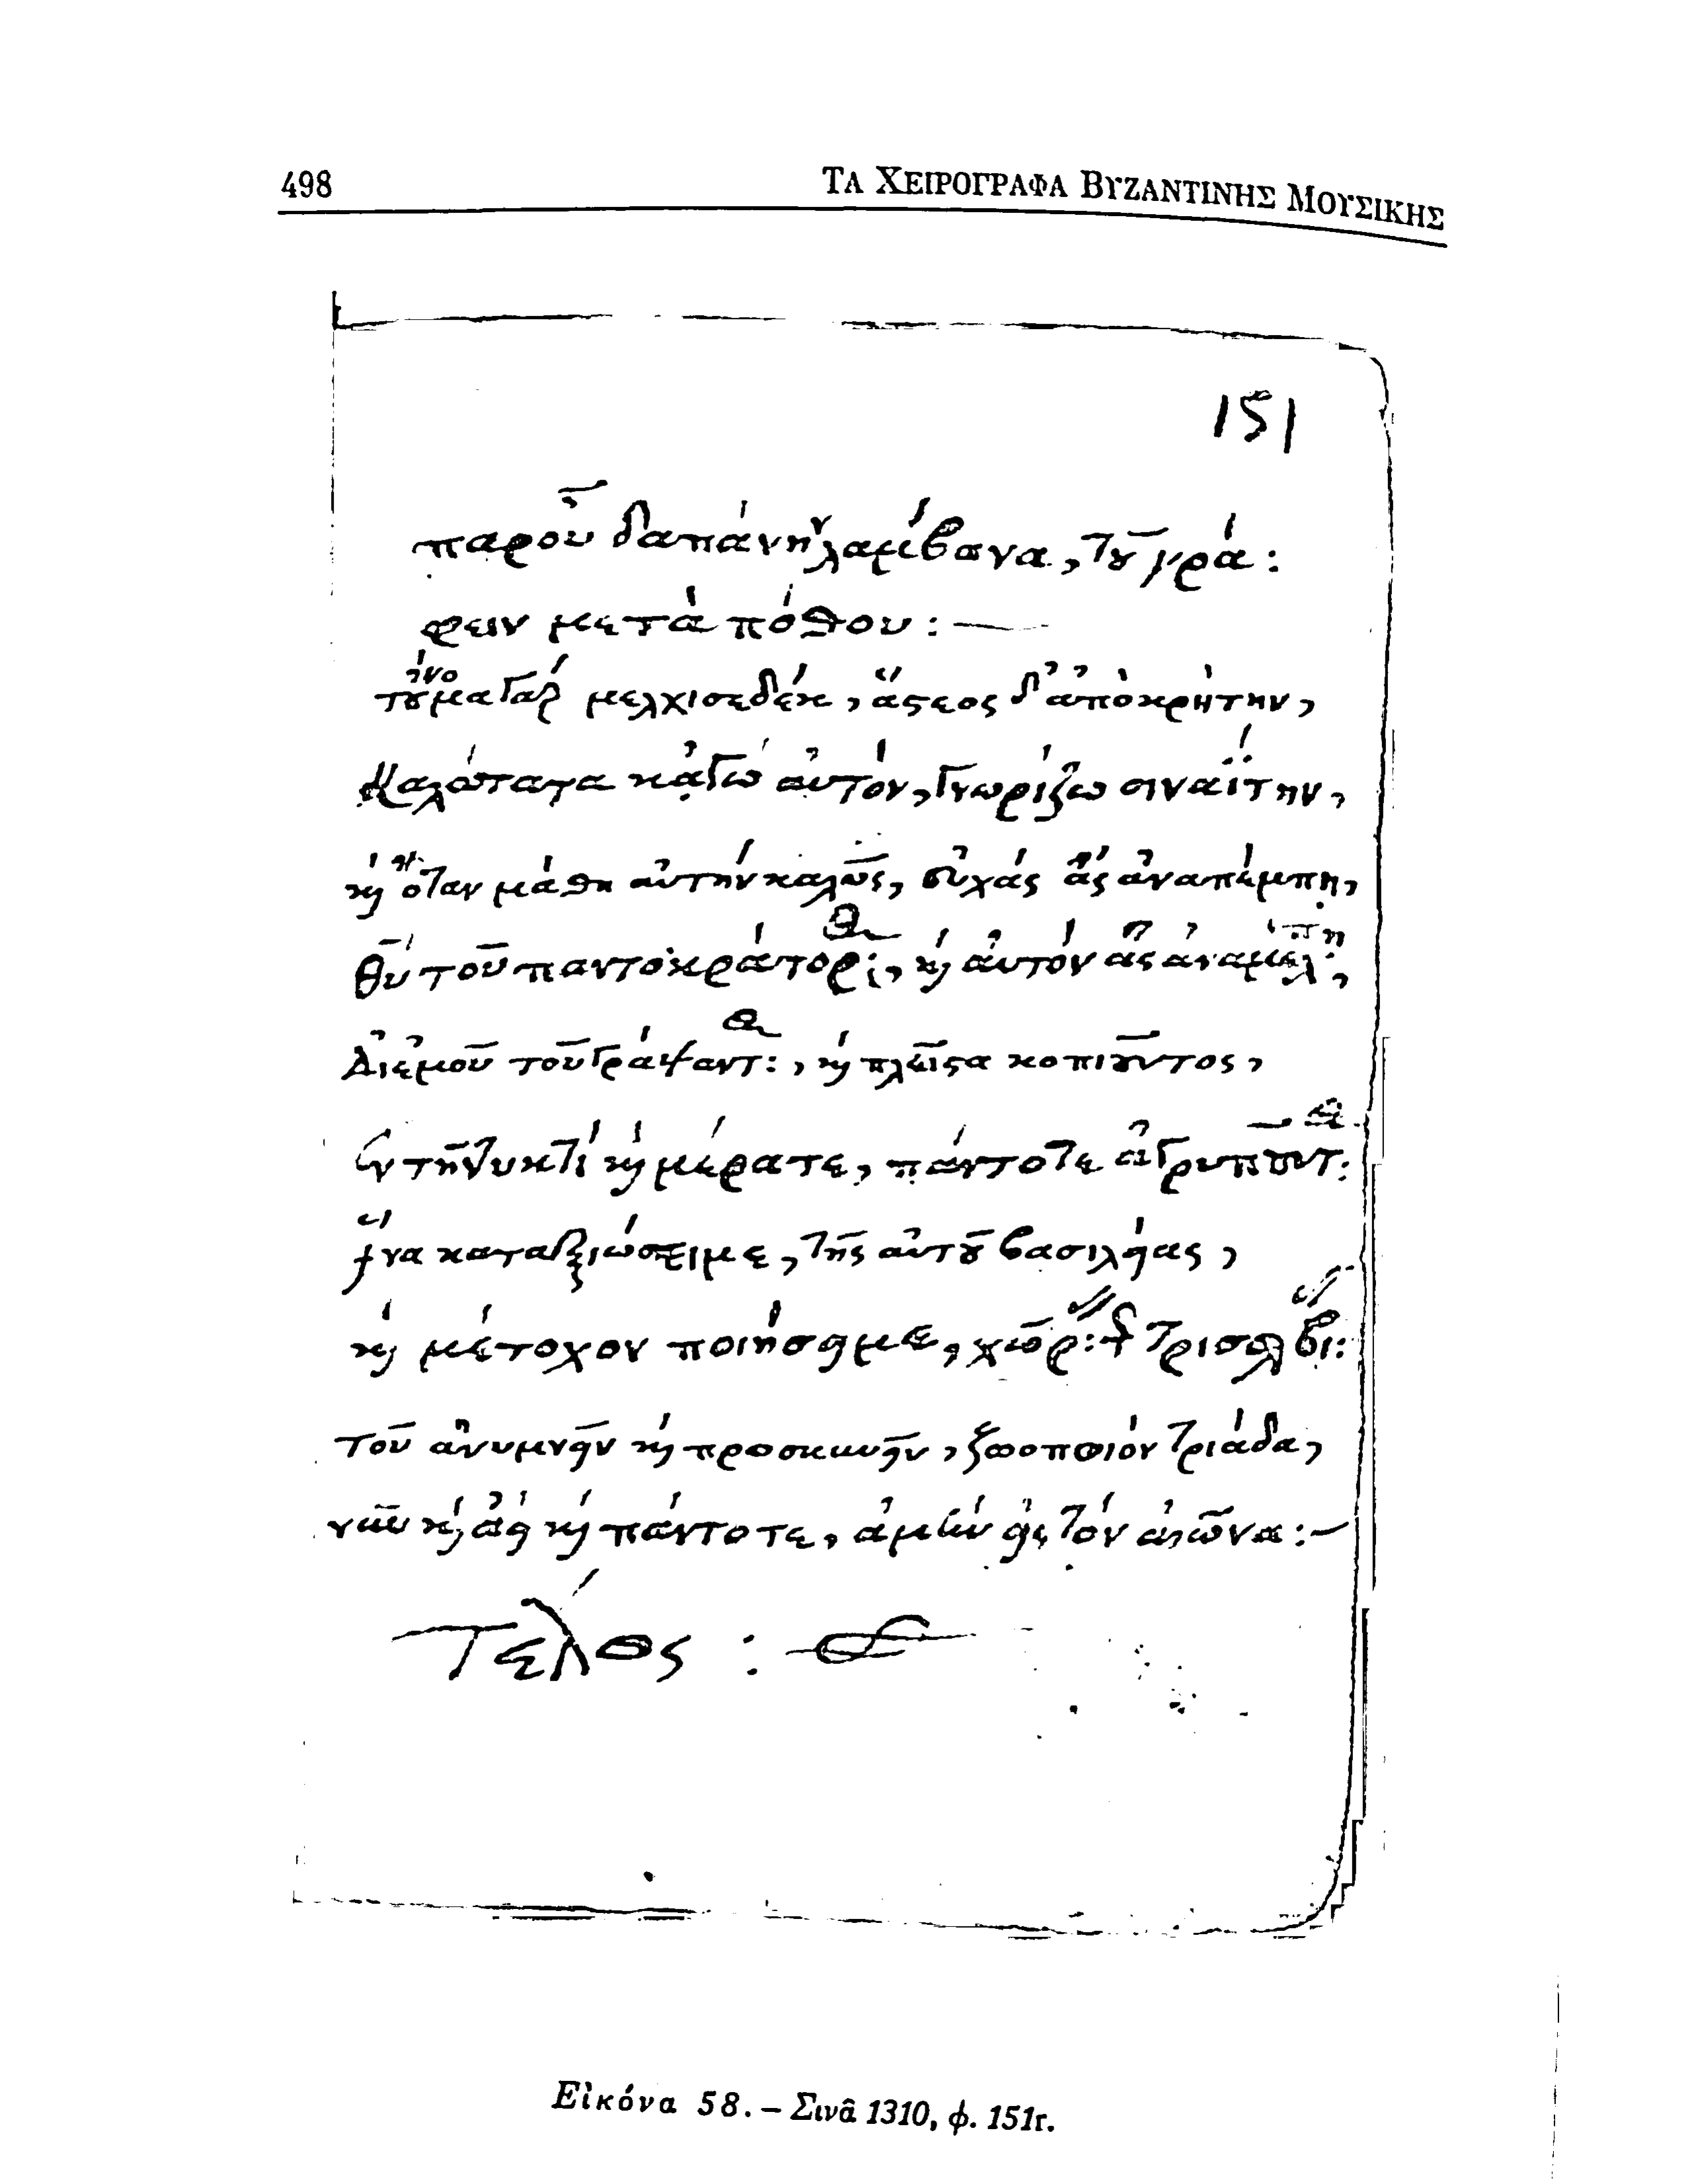 498
ΤΑ ΧΕΙΡΟΓΡΑΦΑ ΒΥΖΑΝΤΙΝΗΣ ΜΟΥΣΙΚΗΣ
151
παροῦ δαπάνην λαμβάνα, τοῦ γρά:
φειν μετὰ πόθου:—
τοὔνομα γὰρ μελχισεδέκ, ἄστεος δ' ἀπὸ κρήτην,
Καλώτατα κἀγὼ αὐτὸν, γνωρίζω σιναΐτην,
κ(αὶ) ὅταν μάθη αὐτὴν καλῶς, εὐχάς ἂς ἀναπέμπη,
θ(εο)ῦ τοῦ παντοκράτορ:, κ(αὶ) αὐτὸν ἂς ἀναμέλπη,
Δι' ἐμοῦ τοῦ γράψαντ:, κ(αὶ) πλεῖστα κοπιοῦντος,
ἐν τῆ νυκτὶ κ(αὶ) μέρα τε, πάντοτε ἀγρυπνοῦντ:
ἵνα καταξιώσει με, τῆς αὐτοῦ βασιλείας,
κ(αὶ) μέτοχον ποιήσει με, χώρ: τ τρισολβί:
τοῦ ἀνυμνεῖν κ(αὶ) προσκυνεῖν, ζωοποιὸν τριάδα,
νῦν κ(αὶ) ἀεὶ κ(αὶ) πάντοτε, ἀμὴν εἰς τὸν αἰῶνα:—
Τέλος:
Εἰκόνα 58. – Σινᾶ 1310, φ. 151r.